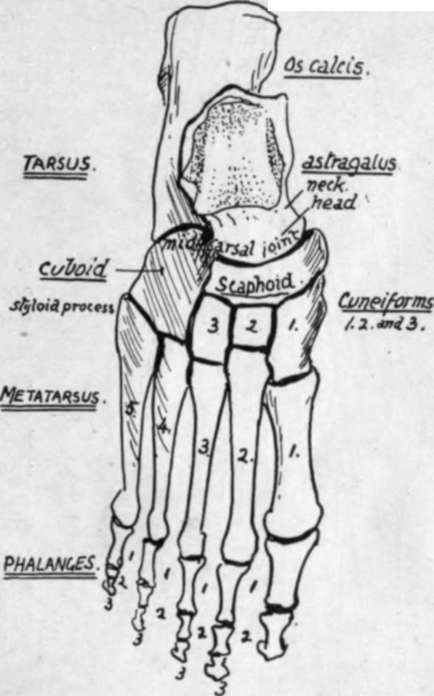 Os calcis.
TARSUS.
astragalus
neck.
head
midtarsal joint
cuboid
Scaphoid.
styloid process
Cuneiforms
1. 2. and 3.
3 2 1.
METATARSUS.
5. 4. 3. 2. 1.
PHALANGES.
1 1 1 1
2 2 2 2
3 3 3 3